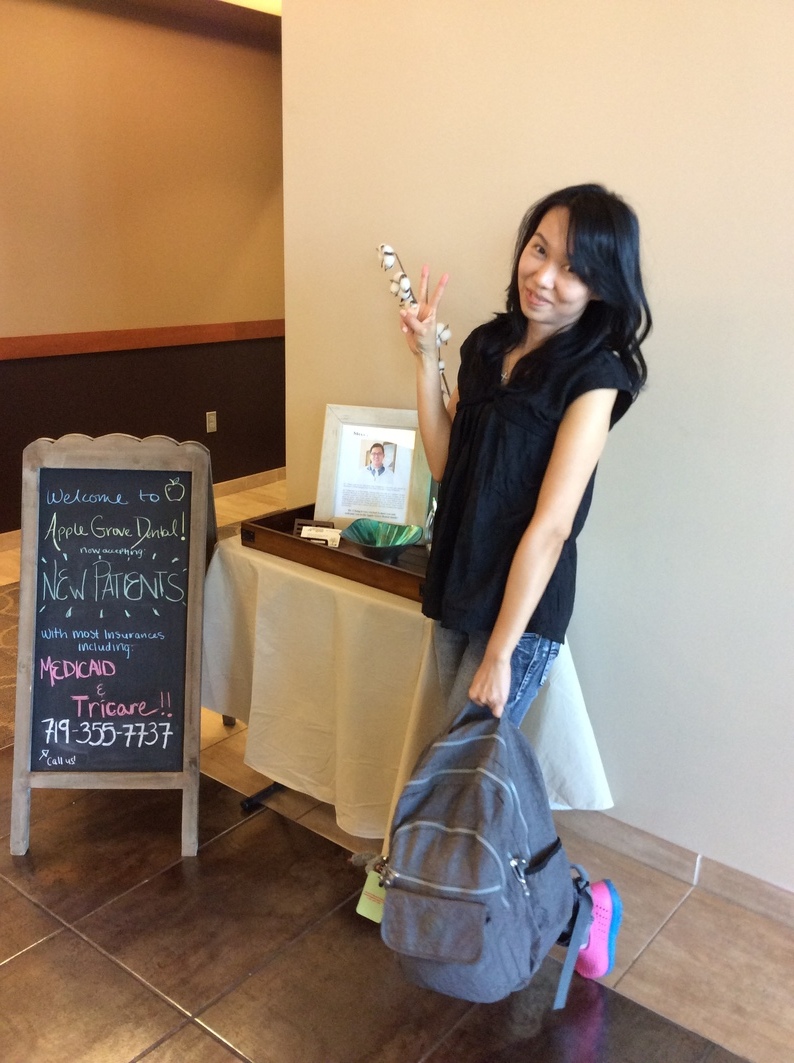 Welcome to
Apple Grove Dental!
now accepting
NEW PATIENTS
with most Insurances
including:
MEDICAID
&
Tricare!!
719-355-7737
call us!